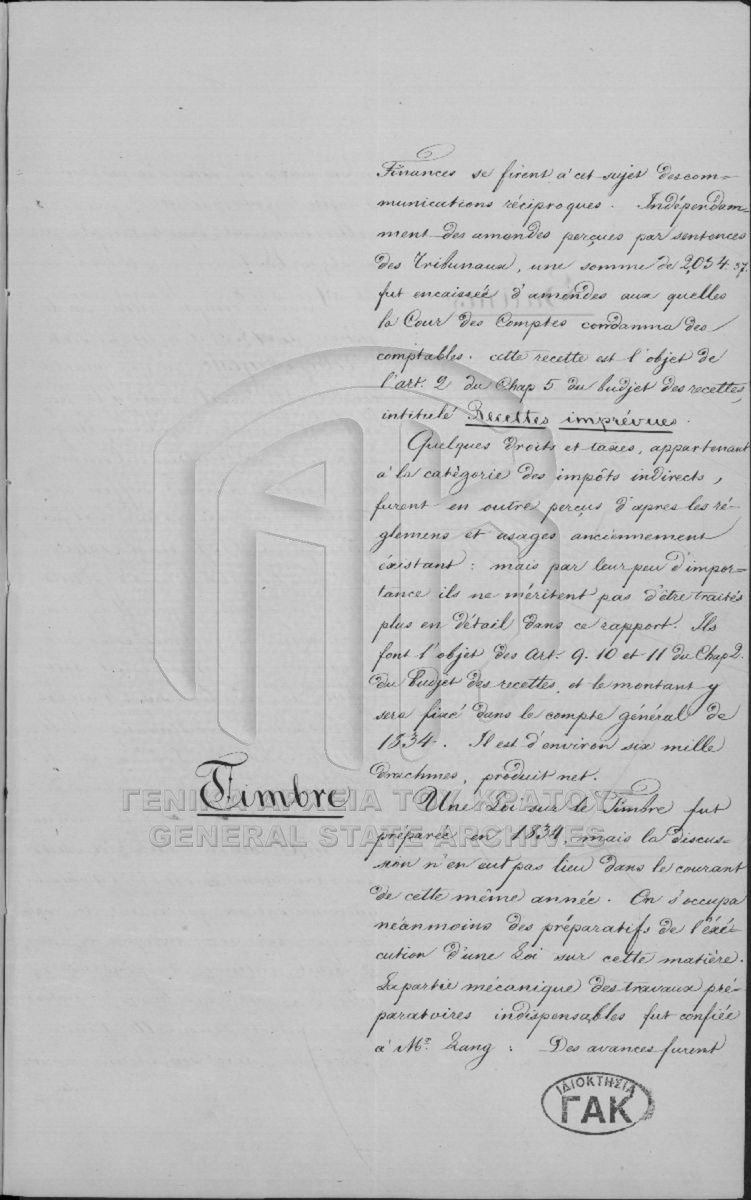 Finances se firent à cet sujet des com=
munications réciproques. Indépendam=
ment des amendes perçues par sentences
des Tribunaux, une somme de 2,034.37.
fut encaissée d'amendes aux quelles
la Cour des Comptes condamna des
comptables. cette recette est l'objet de
l'art. 2 du Chap 5. du budjet des recettes,
intitulé Recettes imprévues.
Quelques droits et taxes, appartenant
à la catégorie des impôts indirects,
furent en outre perçus d'après les ré-
glemens et usages anciennement
existant: mais par leur peu d'impor=
tance ils ne méritent pas d'être traités
plus en détail dans ce rapport. Ils
font l'objet des Art. 9. 10 et 11 du Chap 2.
du budjet des recettes, et le montant y
sera fixé dans le compte général de
1834. Il est d'environ six mille
drachmes, produit net.
Timbre
Une Loi sur le Timbre fut
préparée en 1834, mais la discus-
sion n'en eut pas lieu dans le courant
de cette même année. On s'occupa
néanmoins des préparatifs de l'éxé-
cution d'une Loi sur cette matière.
La partie mécanique des travaux pré-
paratoires indispensables fut confiée
à Mr. Lang. Des avances furent
ΓΕΝΙΚΑ ΑΡΧΕΙΑ ΤΟΥ ΚΡΑΤΟΥΣ
GENERAL STATE ARCHIVES
ΙΔΙΟΚΤΗΣΙΑ
ΓΑΚ